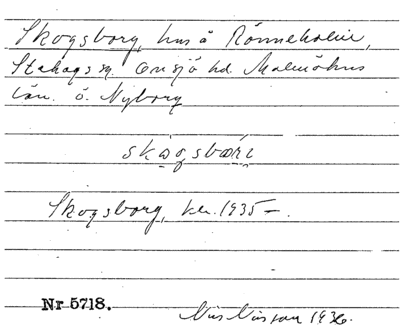 Skogsborg, hus å Rönneholm,
Stehags sn. Onsjö hd. Malmöhus
län. ö. Nyborg
skogsbörj
Skogsborg, kll. 1935 –.
Nr 5718.
Nils Nilsson 1936.